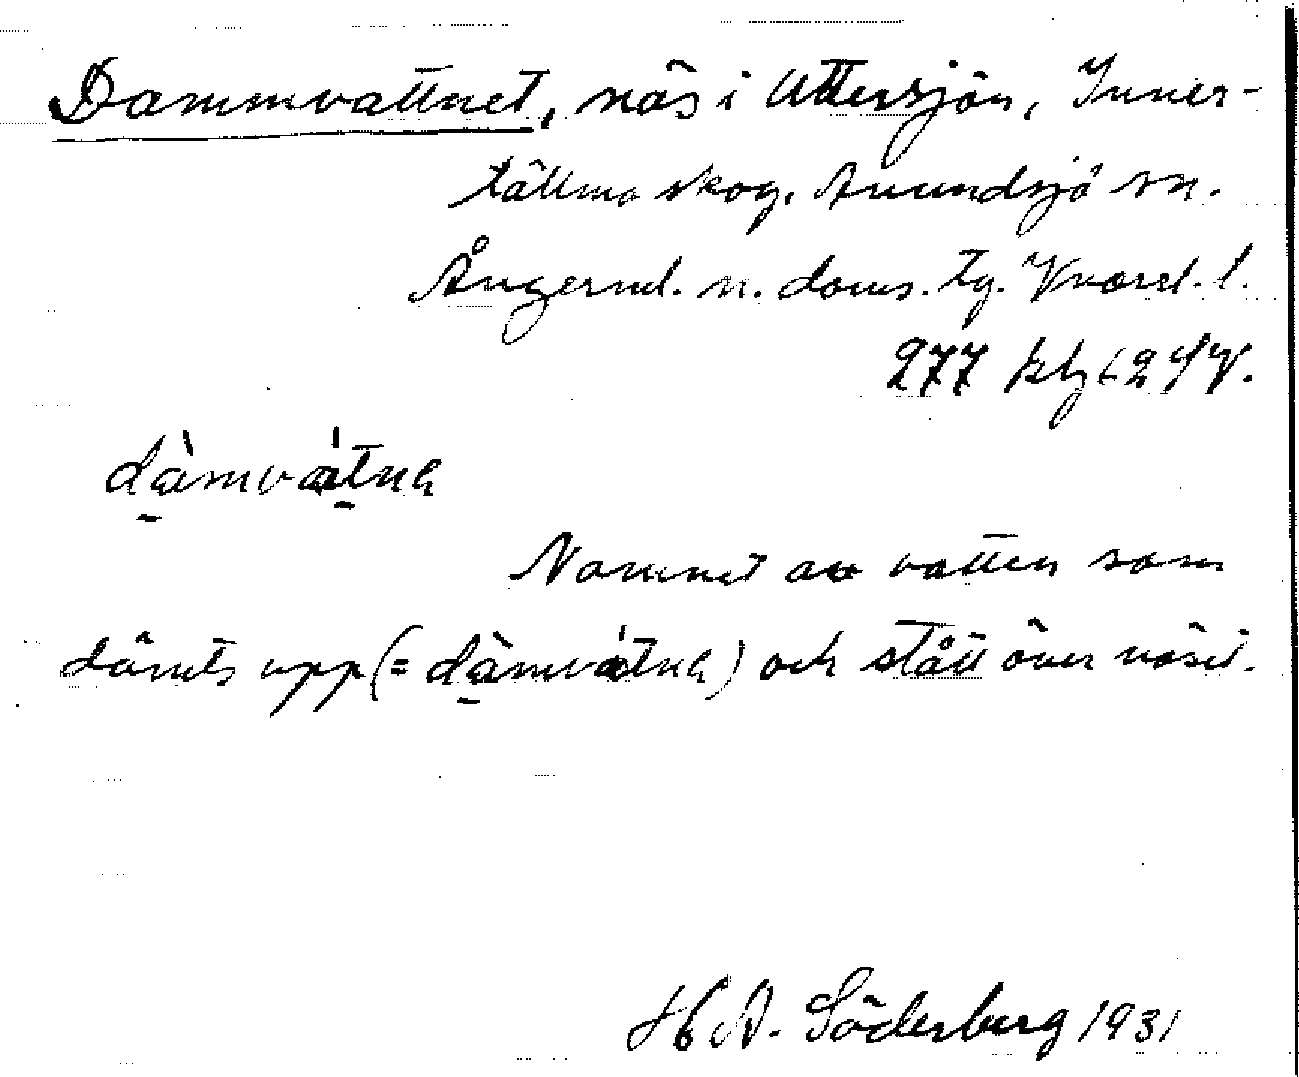 Dammvattnet, näs i Uttersjön, Inner-
tällmo skog, Anundsjö sn.
Ångerml. n. doms. tg. Kvarsl. l.
277 klz 62 YV.
dàmvátnɐ
Namnet av vatten som
dämts upp (= dàmvátnɐ) och stått över näset.
H A. Söderberg 1931